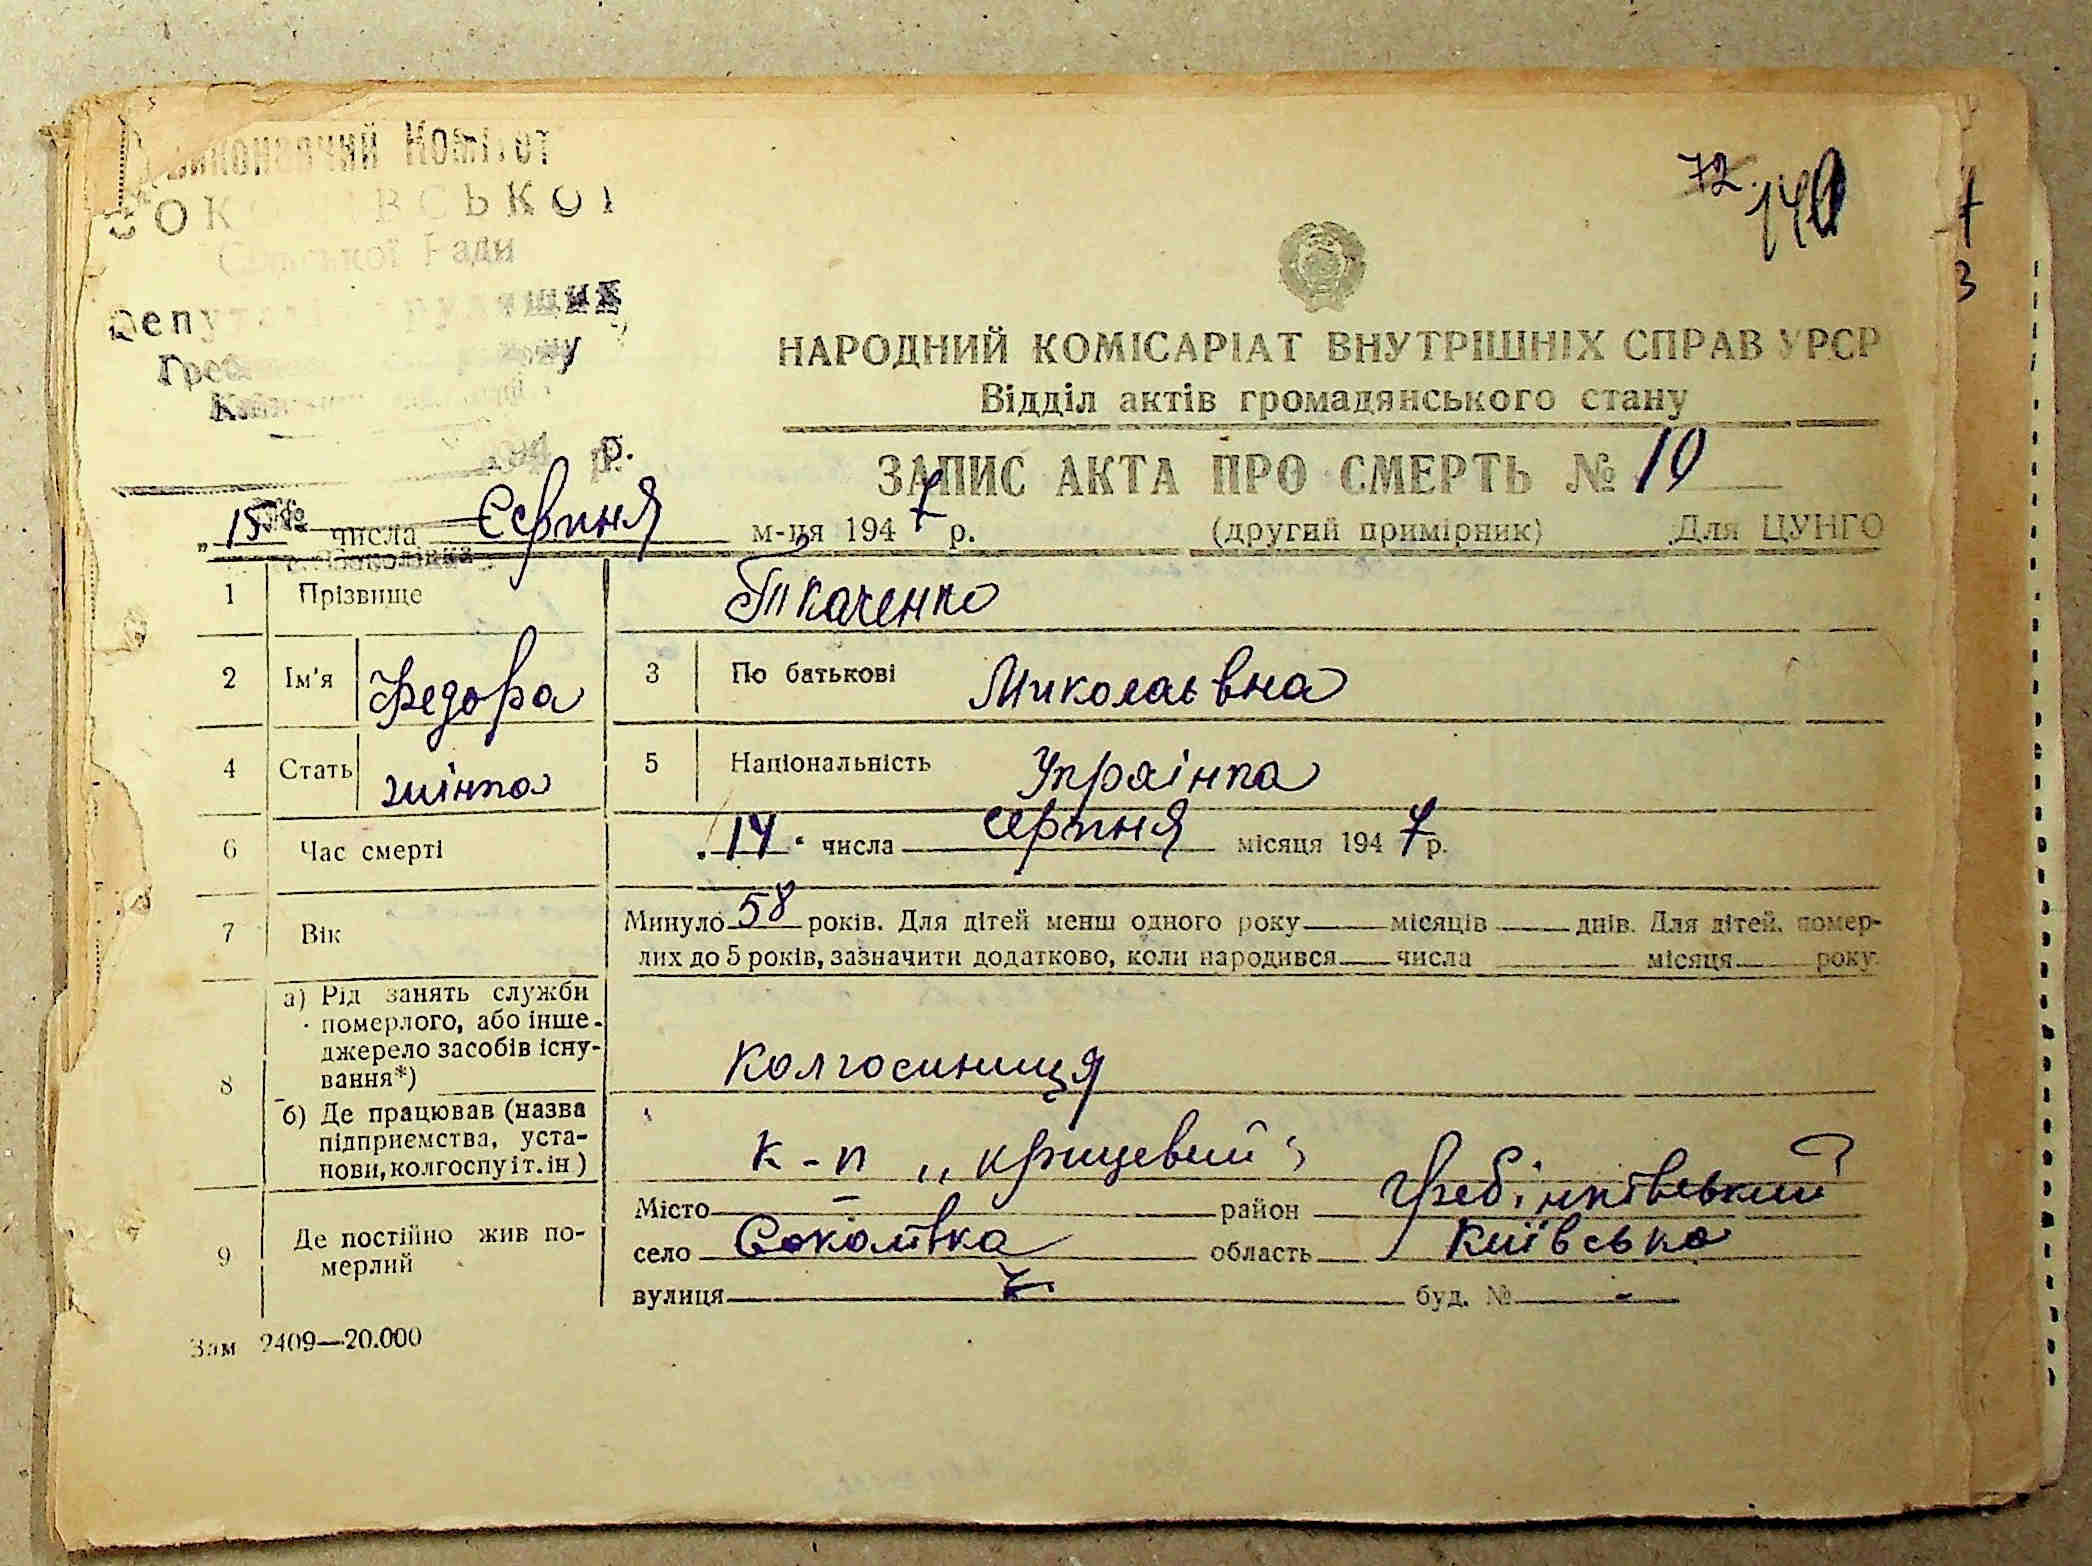 Виконавчий Комітет
Сільської Ради
Депутатів трудящих
р.
72 140
НАРОДНИЙ КОМІСАРІАТ ВНУТРІШНІХ СПРАВ УРСР
Відділ актів громадянського стану
ЗАПИС АКТА ПРО СМЕРТЬ № 10
„15 числа Серпня м-ця 1947 р. (другий примірник) Для ЦУНГО
1 Прізвище Ткаченко
2 Ім'я Федора 3 По батькові Миколаєвна
4 Стать жінка 5 Національність Українка
6 Час смерті „14" числа серпня місяця 1947 р.
7 Вік Минуло 58 років. Для дітей менш одного року місяців днів. Для дітей, помер-
лих до 5 років, зазначити додатково, коли народився числа місяця року
8 а) Рід занять служби
померлого, або інше
джерело засобів існу-
вання*) Колгоспниця
б) Де працював (назва
підприємства, уста-
нови, колгоспу і т. ін) к-п „Крицевий"
9 Де постійно жив по-
мерлий
Місто – район Гребінківський
село Соколівка область Київська
вулиця буд. № -
Зам 2409—20.000